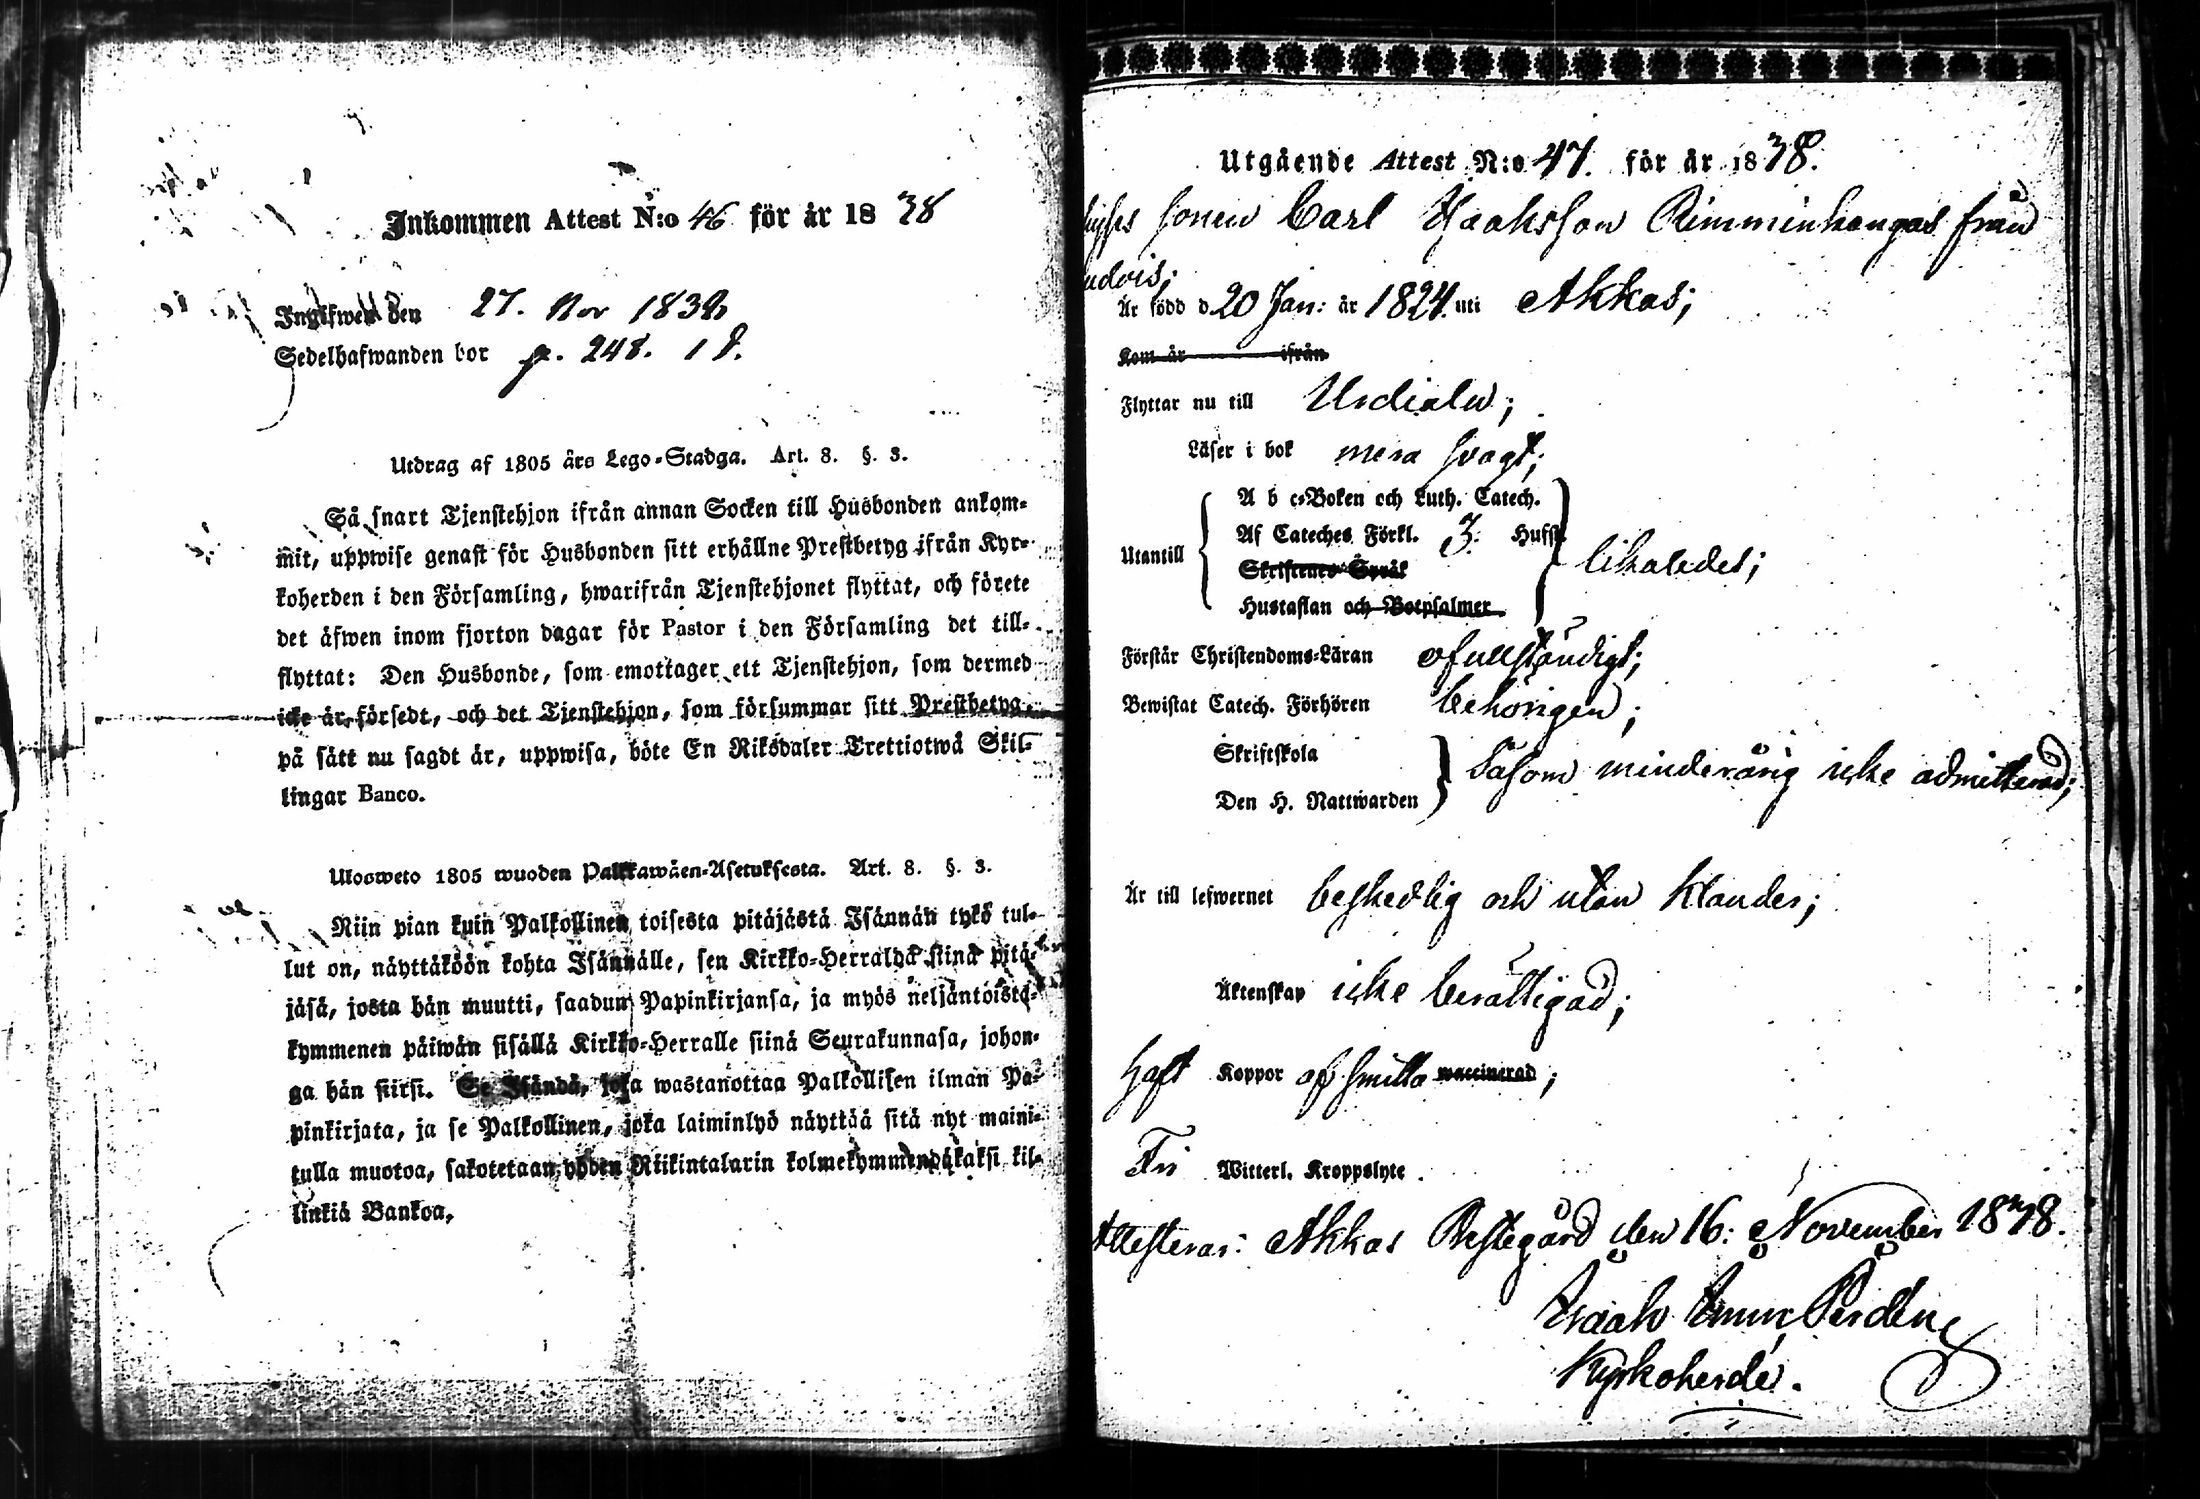 Inkommen Attest N:o 46 för år 1838
Ingifwen den 27. Nov 1838
Sedelhafwanden bor p. 248.
Utdrag af 1805 års Lego-Stadga. Art. 8. §. 3.
Så snart Tjenstehjon ifrån annan Socken till Husbonden ankom-
mit, uppwise genast för Husbonden sitt erhållne Prestbetyg ifrån Kyr-
koherden i den Församling, hwarifrån Tjenstehjonet flyttat, och förete
det äfwen inom fjorton dagar för Pastor i den Församling det till-
flyttat: Den Husbonde, som emottager ett Tjenstehjon, som dermed
icke är försedt, och det Tjenstehjon, som försummar sitt Prestbetyg,
på sätt nu sagdt är, uppwisa, böte En Riksdaler Trettiotwå Skil-
lingar Banco.
Ulosweto 1805 wuoden Palkkawäen-Asetuksesta. Art. 8. §. 3.
Niin pian kuin Palkollinen toisesta pitäjästä Isännän tykö tul-
lut on, näyttäköön kohta Isännälle, sen Kirkko-Herralda siinä pitä-
jäsä, josta hän muutti, saadun Papinkirjansa, ja myös neljäntoista-
kymmenen päiwän sisällä Kirkko-Herralle siinä Seurakunnasa, johon-
ga hän siirsi. Se Isändä, joka wastanottaa Palkollisen ilman Pa-
pinkirjata, ja se Palkollinen, joka laiminlyö näyttää sitä nyt maini-
tulla muotoa, sakotetaan yhden Riikintalarin kolmekymmendäkaksi kil-
linkiä Bankoa.
Utgående Attest N:o 47. för år 1838.
sonen Carl Isaaksson Rimminkangas från
Är född d. 20 Jan: år 1824. uti Akkas;
Kom år ifrån
Flyttar nu till Urdiala;
Läser i bok mera svagt;
Utantill
A b c-Boken och Luth. Catech.
Af Cateches Förkl. 3. Hufst.
Skriftenes Språk
Hustaflan och Botpsalmer
likaledes;
Förstår Christendoms-Läran ofullständigt;
Bewistat Catech. Förhören behörigen;
Skriftskola
Den H. Nattwarden
Såsom minderårig icke admitterad;
Är till lefwernet beskedlig och utan klander;
Äktenskap icke berättigad;
Haft Koppor af smitta waccinerad;
Fri Witterl. Kroppslyte.
Attesteras: Akkas Prestegård den 16: November 1838.
Isaak
Kyrkoherde.